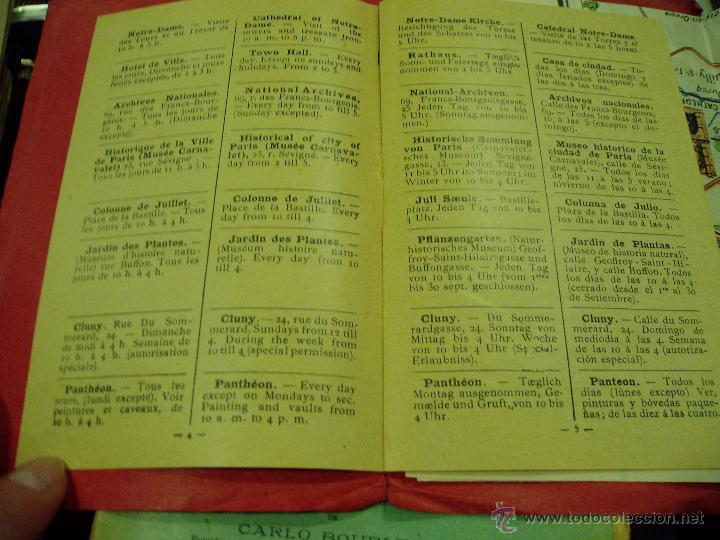 Notre-Dame. — Visite
des Tours et du Trésor de
10 h. à 4 h.
Hotel de Ville. — Tous
les jours, Dimanche et jours
fériés exceptés, de 2 à 3 h.
Archives Nationales.
60, rue des Francs-Bour-
geois. — Tous les jours de
10 h. à 5 h. (Dimanche
excepté).
Historique de la Ville
de Paris (Musée Carna-
valet) 23, rue Sévigné. —
Tous les jours de 11 h. à 4 h.
Colonne de Juillet. —
Place de la Bastille. — Tous
les jours de 10 h. à 4 h.
Jardin des Plantes. —
(Muséum d'histoire natu-
relle) rue Buffon. Tous les
jours de 10 h. à 4 h.
Cluny. Rue Du Som-
merard, 24. — Dimanche
de midi à 4 h. Semaine de
10 h. à 4 h. (autorisation
spéciale).
Panthéon. — Tous les
jours, (lundi excepté). Voir
peintures et caveaux, de
10 h. à 4 h.
Cathedral of Notre-
Dame. — Visit of the
towers and treasure from
10 a. m. to 5 p. m.
Town Hall. — Every
day. Except on sundays and
holidays. From 2 to 3.
National Archives,
69, r. des Francs-Bourgeois,
Every day from 10 till 5.
(Sunday excepted).
Historical of city of
Paris (Musée Carnava-
let), 23, r. Sévigné. — Every
day from 11 till 4.
Colonne de Juillet. —
Place de la Bastille. Every
day from 10 till 4.
Jardin des Plantes. —
(Muséum histoire natu-
relle). Every day from 10
till 4.
Cluny. — 24, rue du Som-
merard. Sundays from 12 till
4. During the week from
10 till 4 (special permission).
Panthéon. — Every day
except on Mondays to see.
Painting and vaults from
10 a. m. to 4 p. m.
— 4 —
Notre-Dame Kirche. —
Besichtigung der Türme
und des Schatzes von 10 bis
5 Uhr.
Rathaus. — Tæglich
Sonn- und Feiertage ausge-
nommen von 2 bis 3 Uhr.
National-Archiven. —
69, Francs-Bourgeoisgasse.
Jeden Tag von 10 bis
5 Uhr. (Sonntag ausgenom-
men).
Historische Sammlung
von Paris (Carnaval-
etsches Museum) Sévigné-
gasse, 23. — Jeden Tag von
11 bis 5 Uhr im Sommer; im
Winter von 10 bis 4 Uhr.
Juli Sæule. — Bastille-
platz. Jeden Tag von 10 bis
4 Uhr.
Pflanzengarten. (Natur-
historisches Museum) Geof-
froy-Saint-Hilairegasse und
Buffongasse. — Jeden Tag
von 10 bis 4 Uhr (vom 1ten
bis 30 sept. geschlossen).
Cluny. — Du Somme-
rardgasse, 24. Sonntag von
Mittag bis 4 Uhr. Woche
von 10 bis 4 Uhr
Erlaubniss).
Panthéon. — Tæglich
Montag ausgenommen, Ge-
mælde und Gruft, von 10 bis
4 Uhr.
Catedral Notre-Dame.
— Visita de las Torres y el
tesauro de 10 à las 5 horas.
Casa de ciudad. — To-
dos los dias (Domingo y
dias feriados exceptes) de
2 à las 3.
Archivos nacionales.
69, Calle des Francs-Bourgeois,
— Todos los dias de 10
à las 5. (excepto el do-
mingo).
Museo historico de la
ciudad de Paris (Musée
Carnavalet), calle de Sévi-
gné, 23. — Todos los dias
de las 11 à las 5 verano;
nivierno de las 10 à las 4.
Columna de Julio.
Plaza de la Bastilla. Todos
los dias de las 10 à las 4.
Jardin de Plantas. —
(Museo de historia natural),
calle Geoffroy-Saint-Hi-
laire, y calle Buffon. Todos
los dias de las 10 à las 4
(cerrado desde el 1ro al 30
de Setiembre).
Cluny. — Calle du Som-
merard, 24. Domingo de
mediodia à las 4. Semana
de las 10 à las 4 (autoriza-
ción especial).
Panteon. — Todos los
dias (lúnes excepto) Ver,
pinturas y bóvedas peque-
ñas; de las diez à las cuatro.
— 5 —
CARLO
© www.todocoleccion.net